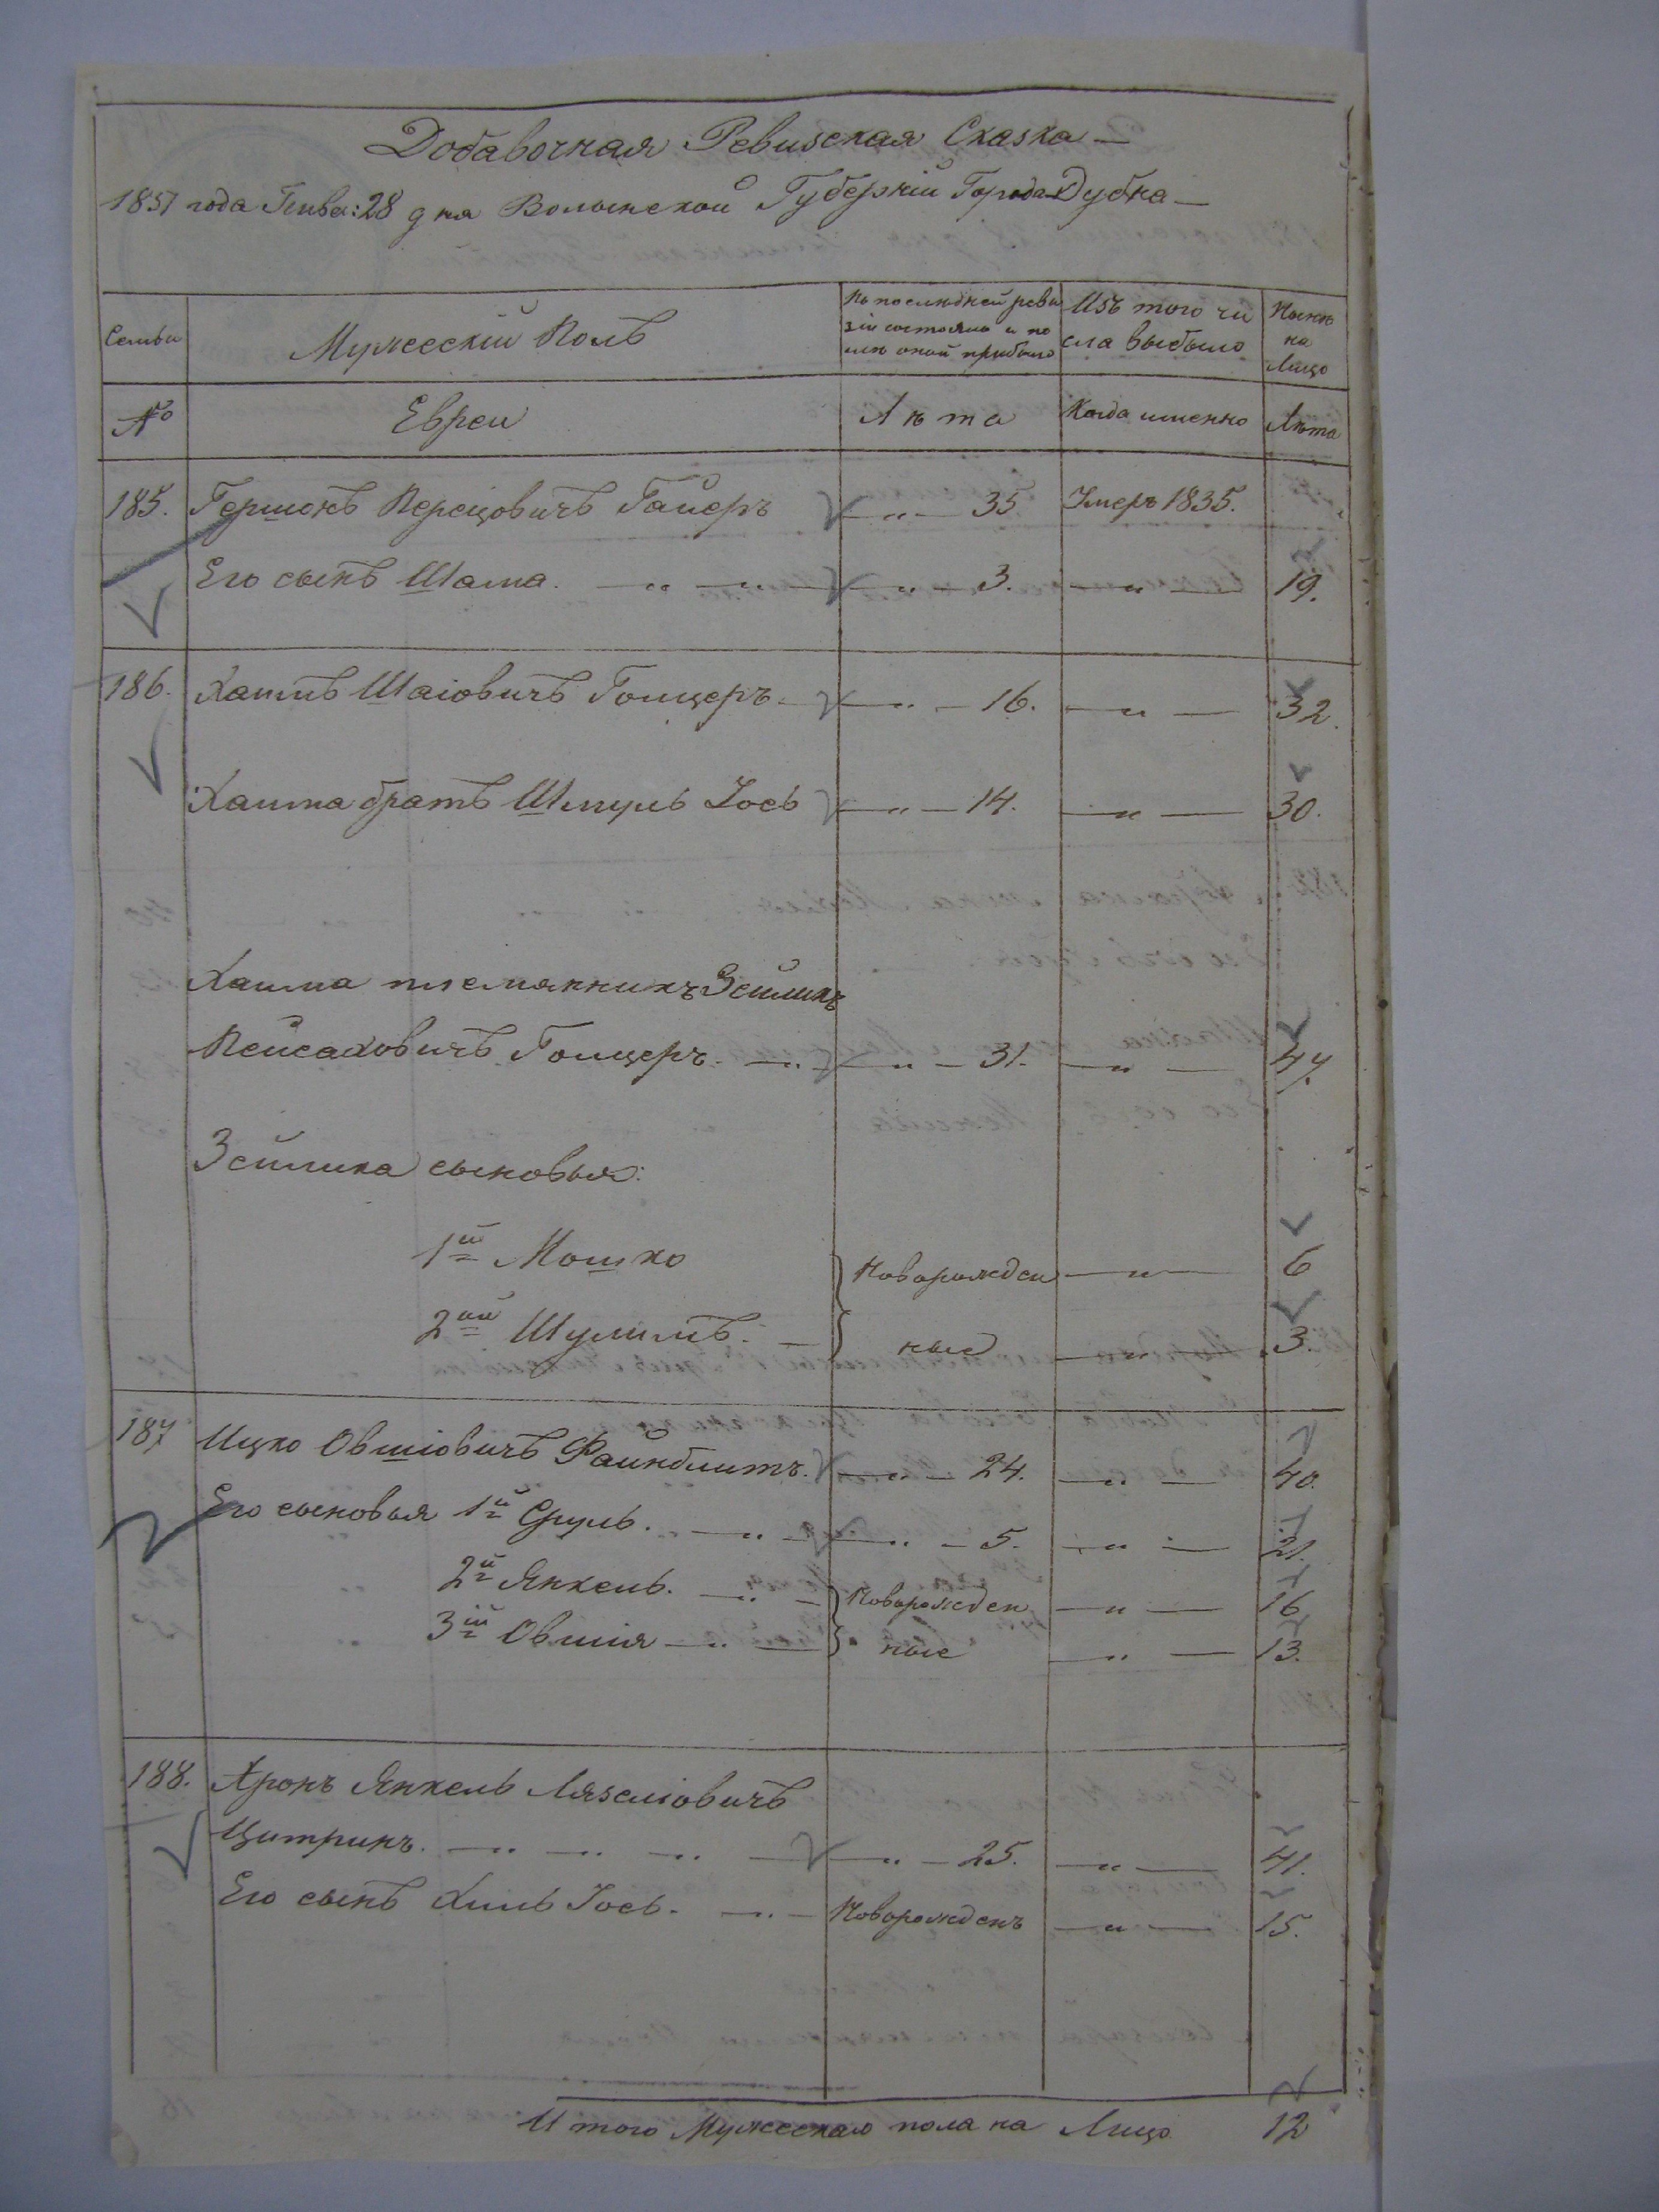 Добавочная Ревизская Сказка —
1851 года Генва: 28 дня Волынской Губерніи Города Дубна —
Семьи
Мужескій Полъ
По последней реви
зіи состояло и по
слѣ оной прибыло
Изъ того чи
сла выбыло
Нынѣ
на
Лицо
№
Евреи
Лѣта
Когда именно
Лѣта
185. Гершонъ Перецовичъ Гайеръ — " — 35 Умеръ 1835.
Его сынъ Шама. — " — " — " — 3. — " — 19.
186. Хаимъ Шаіовичъ Голцеръ — " — 16. — " — 32.
Хаима братъ Шмуль Іось — " — 14. — " — 30.
Хаима племянникъ Зейликъ
Пейсаховичъ Голцеръ. — " — " — 31. — " — 47.
Зейлика сыновья:
1й Мошко Новорожден — " — 6
2ий Шулимъ. — ные — " — 3.
187 Ицко Овшіовичъ Файнблитъ. — " — 24. — " — 40.
Его сыновья 1й Сруль. — " — " — 5. — " — 21.
2й Янкель. — " — Новорожден — " — 16
3ій Овшія — " — ные — " — 13.
188. Аронъ Янкель Лязеліовичъ
Цитринъ. — " — " — " — " — 25. — " — 41.
Его сынъ Хиль Іось. — " — Новорожденъ — " — 15.
И того Мужескаго пола на Лицо 12